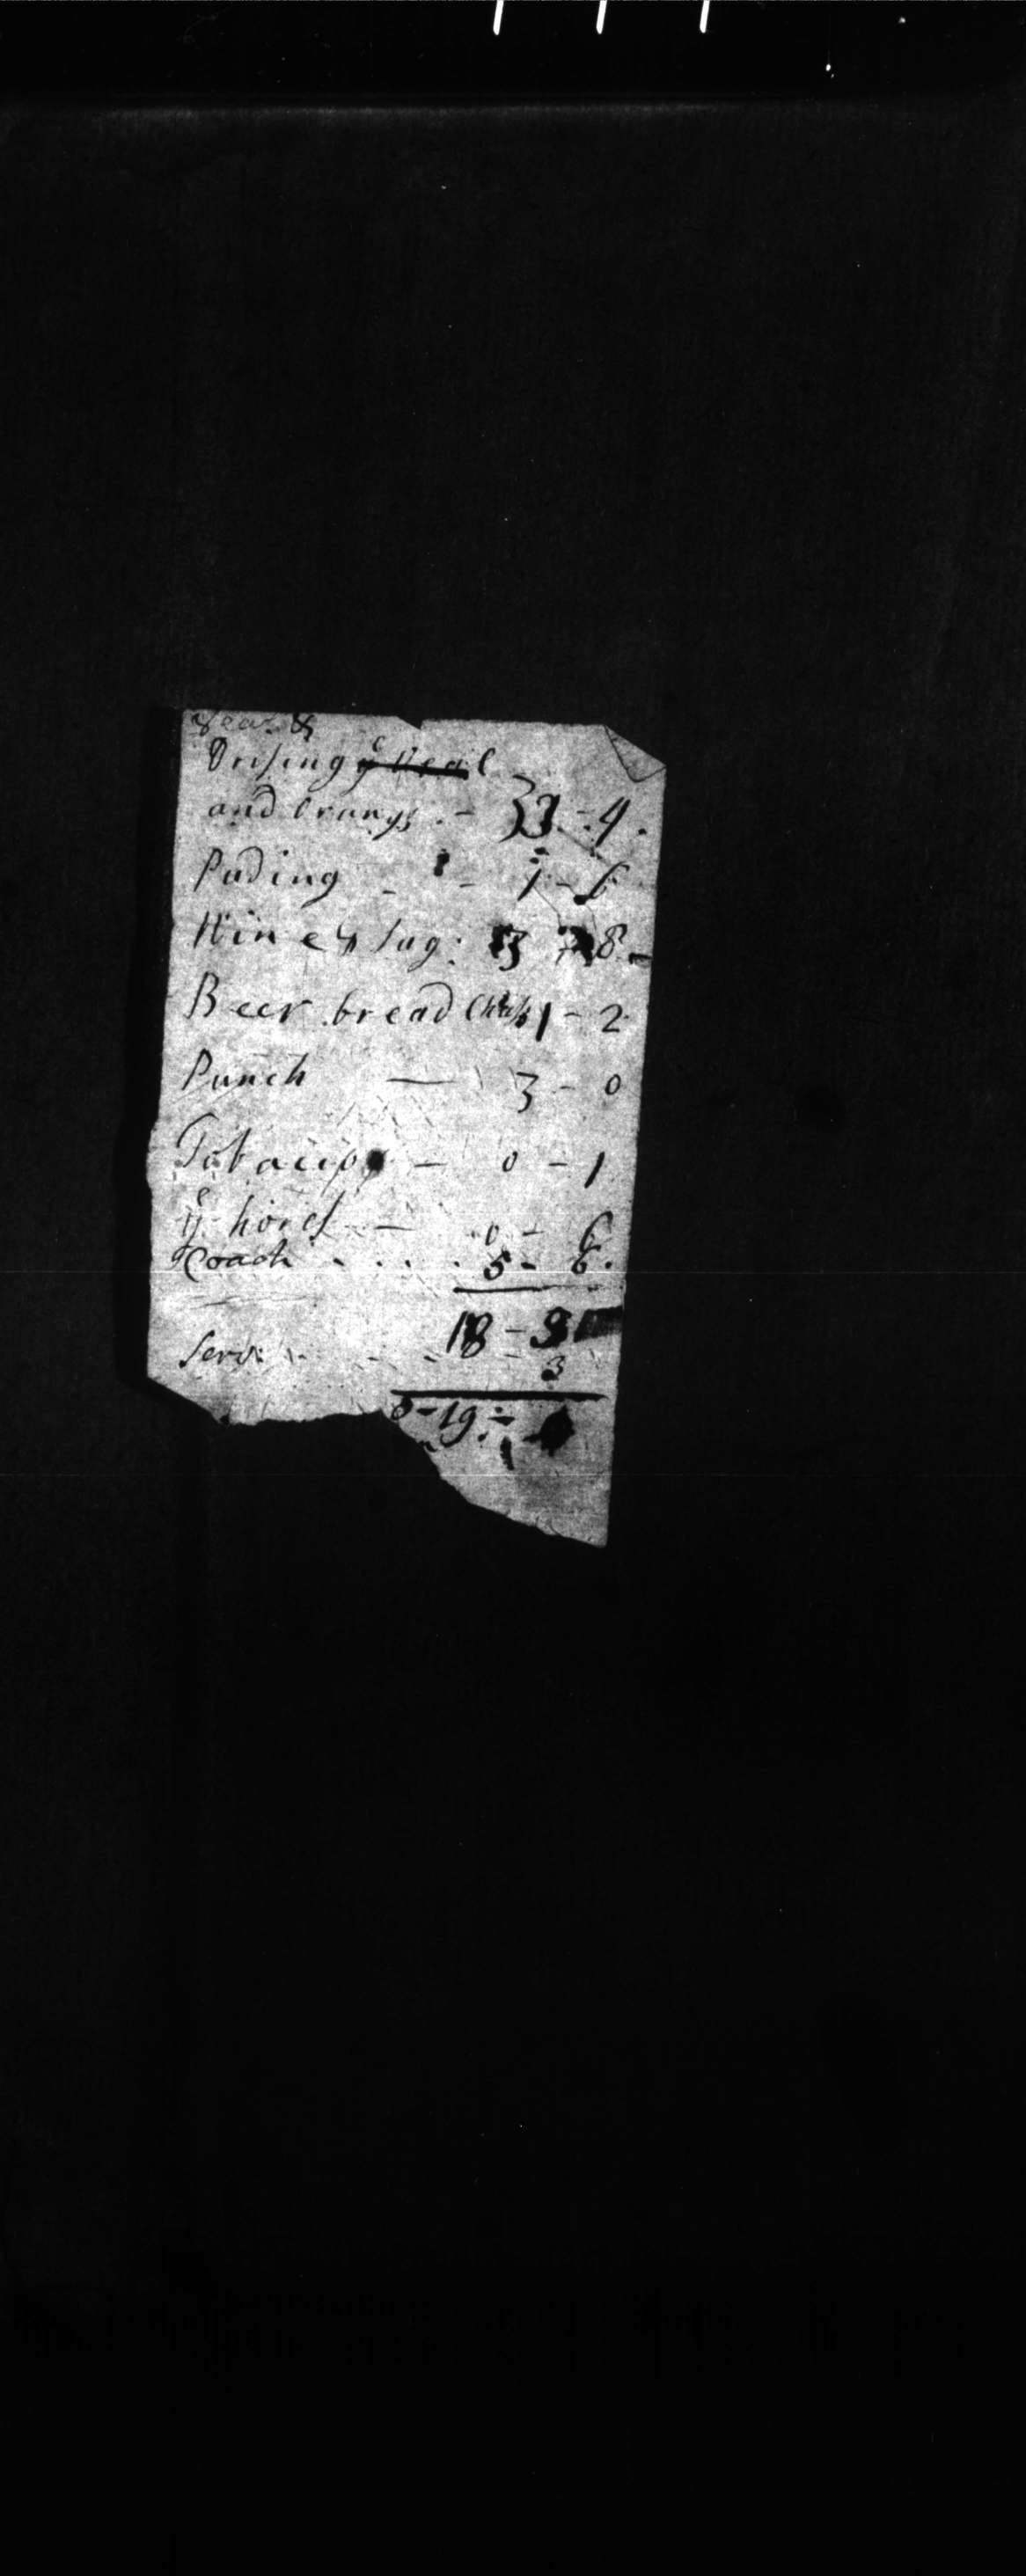 Veal &
Dresing ye Veal
and orangs . - 3 - 4 .
Puding - - 1 - 6
Wine & Sug: 3 8
Beer bread Chees 1 - 2
Punch — 3 - 0
Tobacc — 0 - 1
ye horss — 0 - 6
Coach . . . . 5 - 6 .
18 - 9
Serv: - - - 3
0 - 19 : -